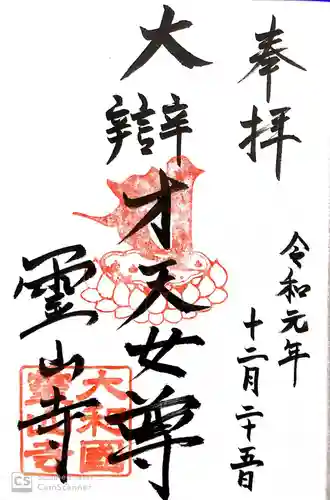 奉拝
令和元年
十二月二十五日
大辯才天女尊
霊山寺
大和國
霊山寺
CS CamScanner